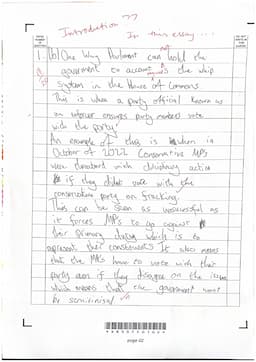 Introduction ??
In this essay...
1. b) One Way Parliament can not hold the
government to account is the whip
system in the House of Commons
This is when a party official known as
an enforcer ensures party members vote
with the party.
An example of this is when in
October of 2022 Conservative MPs
were threatened with disciplinary action
if they didnt vote with the
conservative party on fracking.
This can be seen as unsuccessful as
it forces MPs to go against
their primary duty which is to
represent their constituents It also means
that the MPs have to vote with that
party even if they disagree on the issue
which means that the government wont
be scrutinised
page 02